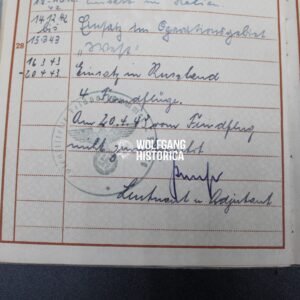 14.12.42
bis
15.3.43
Einsatz im Operationsgebiet
"West"
28
16.3.43
20.4.43
Einsatz in Russland
4 Feindflüge.
Am 20.4.43 vom Feindflug
nicht zurückgekehrt
WOLFGANG
HISTORICA
Leutnant u. Adjutant